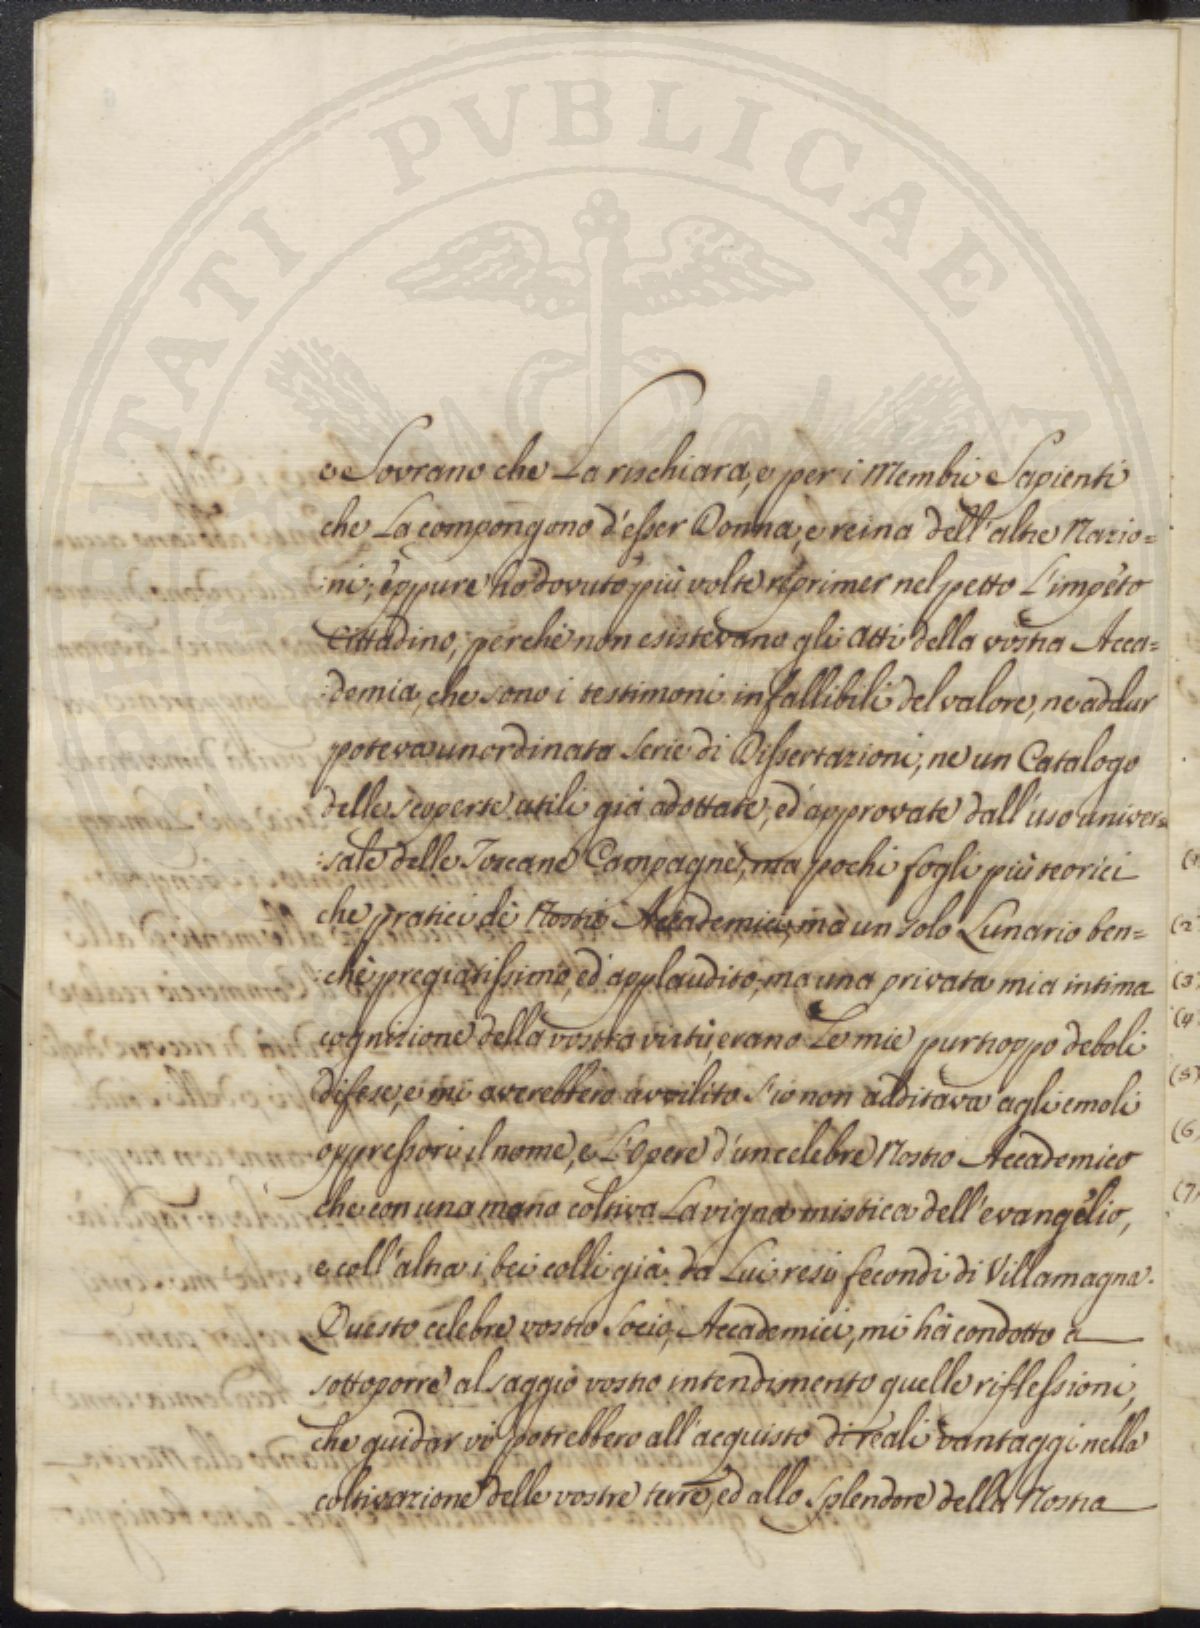 PROSPERITATI PVBLICAE A
e Sovrano che La rischiara, e per i Membri Sapienti
che La compongono d'esser Donna, e reina dell'altre Nazio=
:ni; eppure ho dovuto più volte reprimer nel petto L'impeto
Cittadino, perchè non esistevano gli Atti della vostra Acca=
:demia, che sono i testimoni infallibili del valore, ne addur
poteva un ordinata Serie di Dissertazioni, ne un Catalogo
delle scoperte utili già adottate, ed approvate dall'uso univer=
:sale delle Toscane Campagne, ma pochi fogli più teorici
che pratici dè Nostri Accademici, ma un solo Lunario ben=
:chè pregiatissimo, ed applaudito, ma una privata mia intima
cognizione della vostra virtù, erano Le mie purtroppo deboli
difese, e mi averebbero avvilito s'io non additava agli emoli
oppressori il nome, e L'Opere d'un celebre Nostro Accademico
che con una mano coltiva La vigna mistica dell'evangelio,
e coll'altra i bei colli già da Lui resi fecondi di Villamagna.
Questo celebre vostro Socio, Accademici, mi hà condotto a
sottoporre al saggio vostro intendimento quelle riflessioni,
che guidar vi potrebbero all'acquisto di reali vantaggi nella
coltivazione delle vostre terre, ed allo Splendore della Nostra
(2
(3
(4
(5)
(6
(7